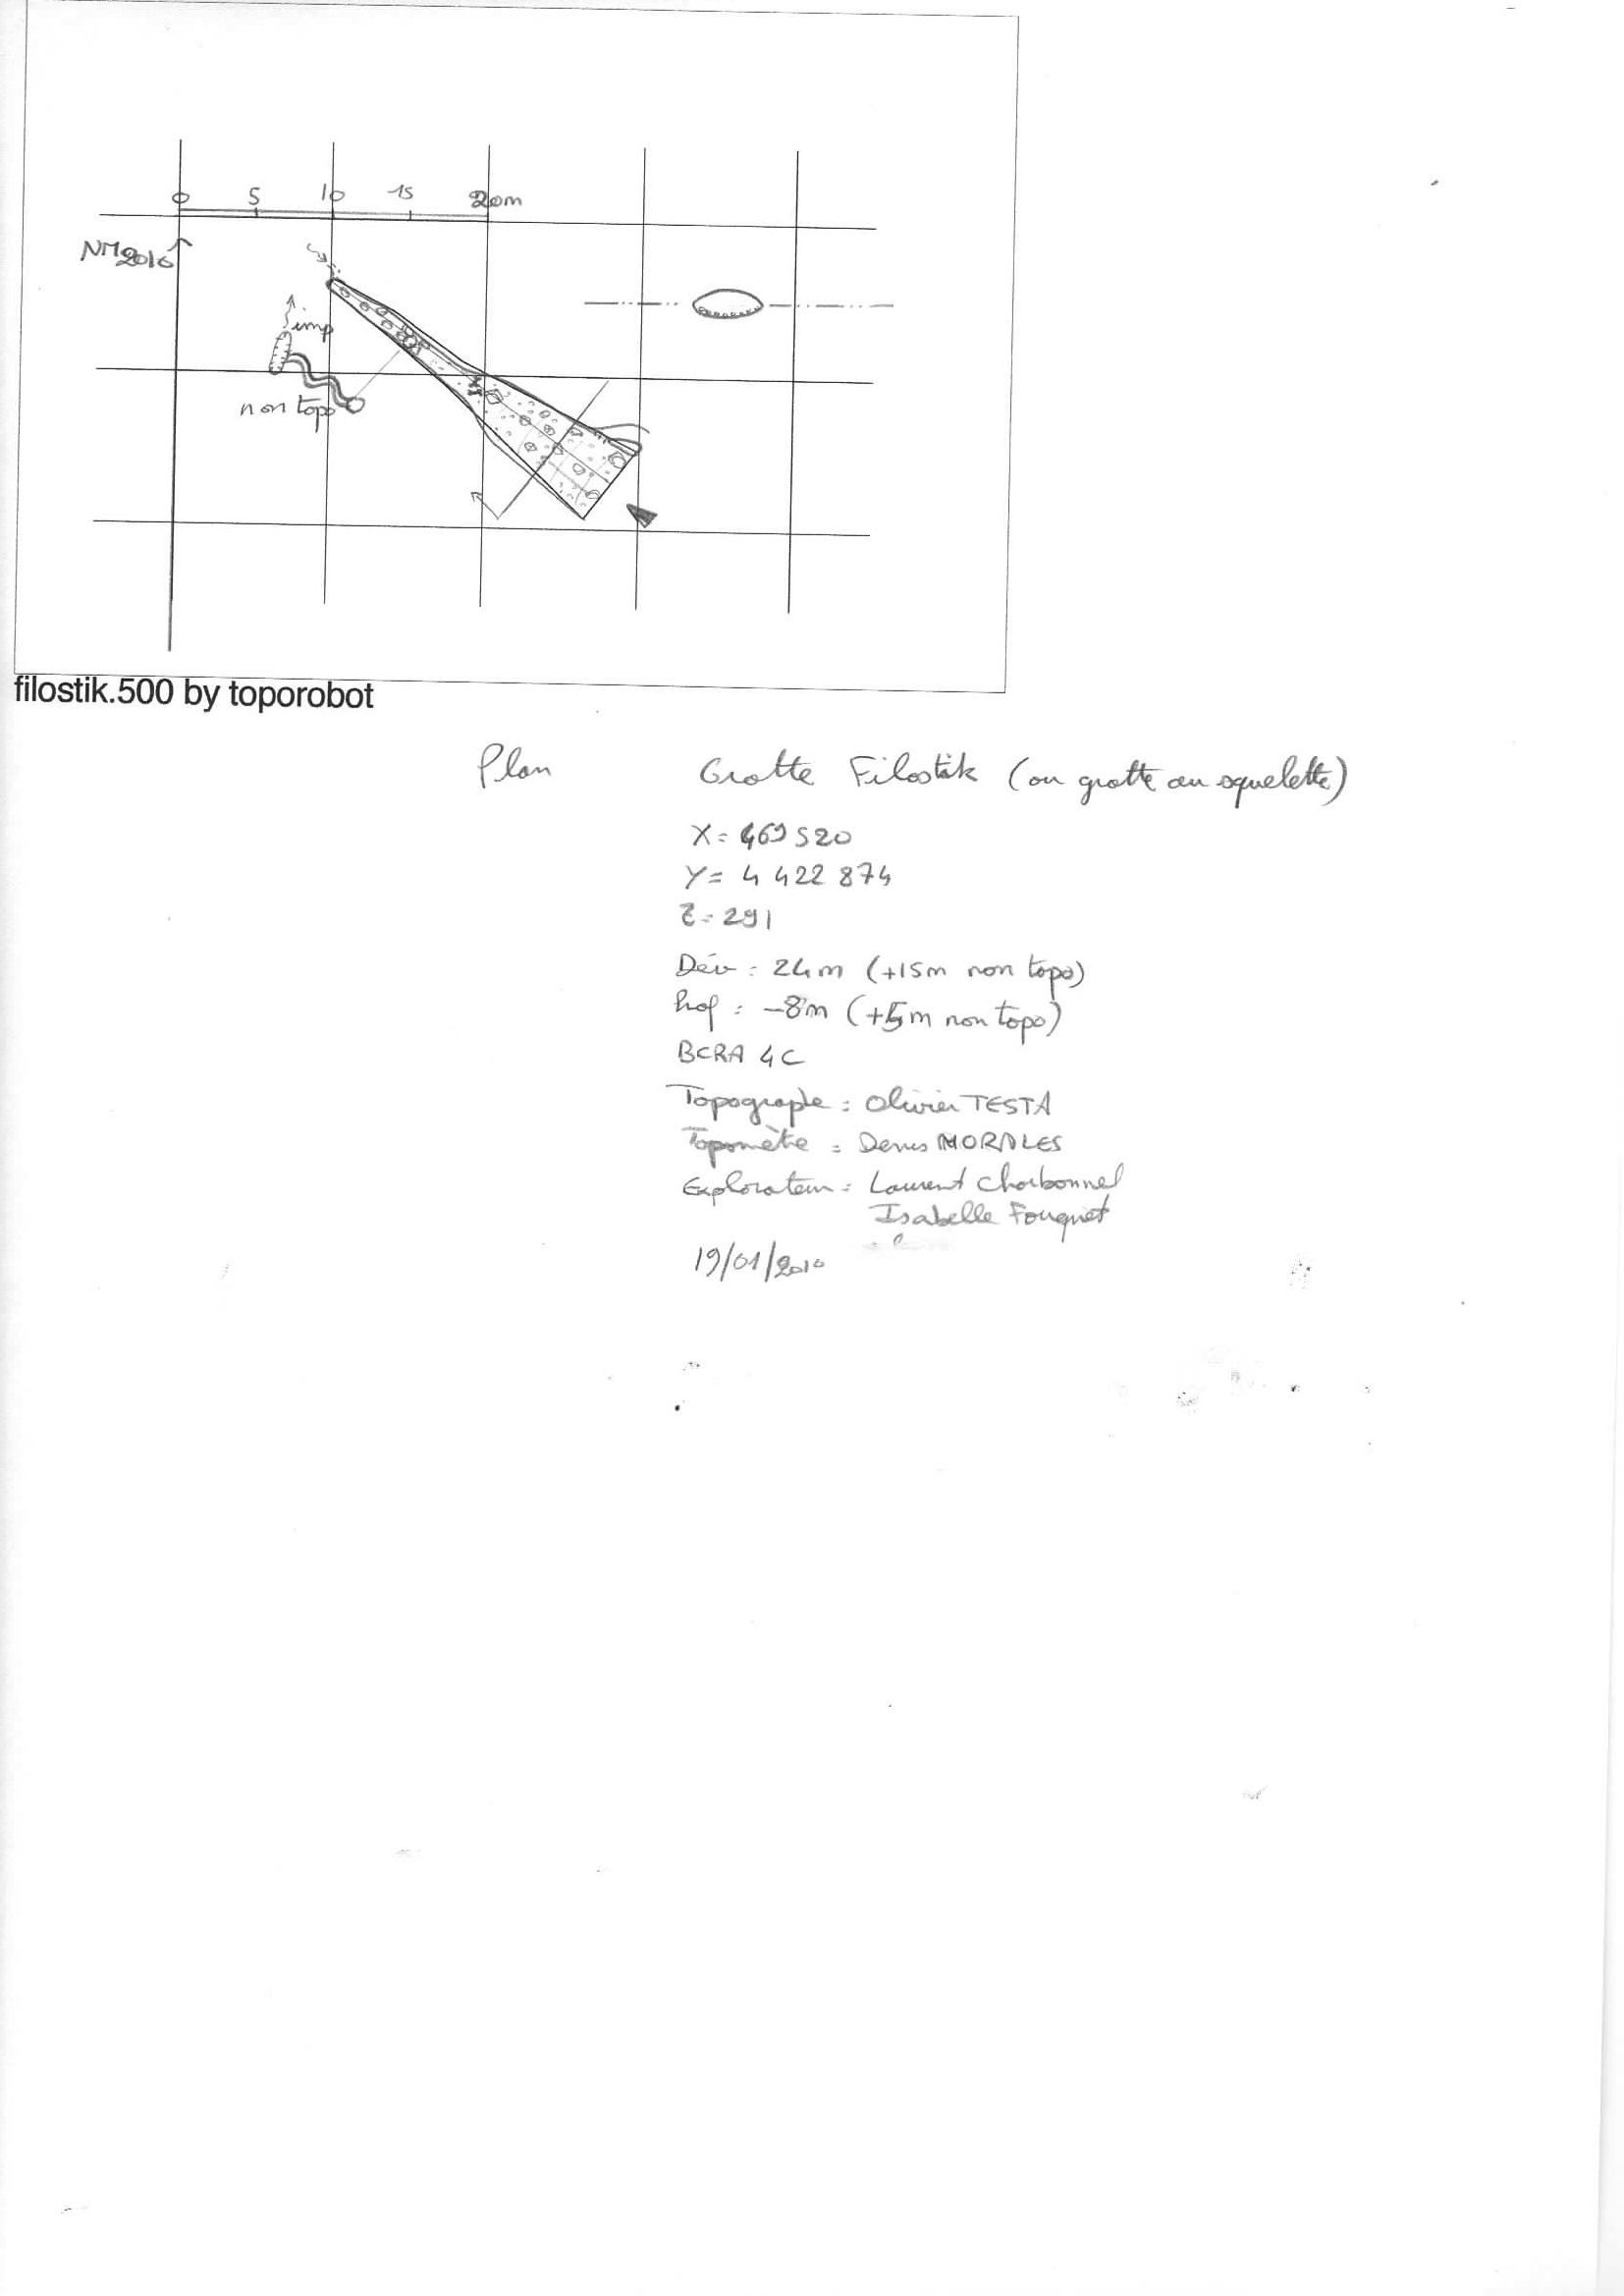 0 5 10 15 20m
NM2010
imp
non topo
filostik.500 by toporobot
Plan Grotte Filostik (ou grotte au squelette)
X= 469 520
Y= 4 422 874
Z= 291
Dév : 24m (+15m non topo)
Prof : -8m (+5m non topo)
BCRA 4C
Topographe : Olivier TESTA
Topomètre : Denis MORALES
Explorateur : Laurent Charbonnel
Isabelle Fouquet
19/01/2010